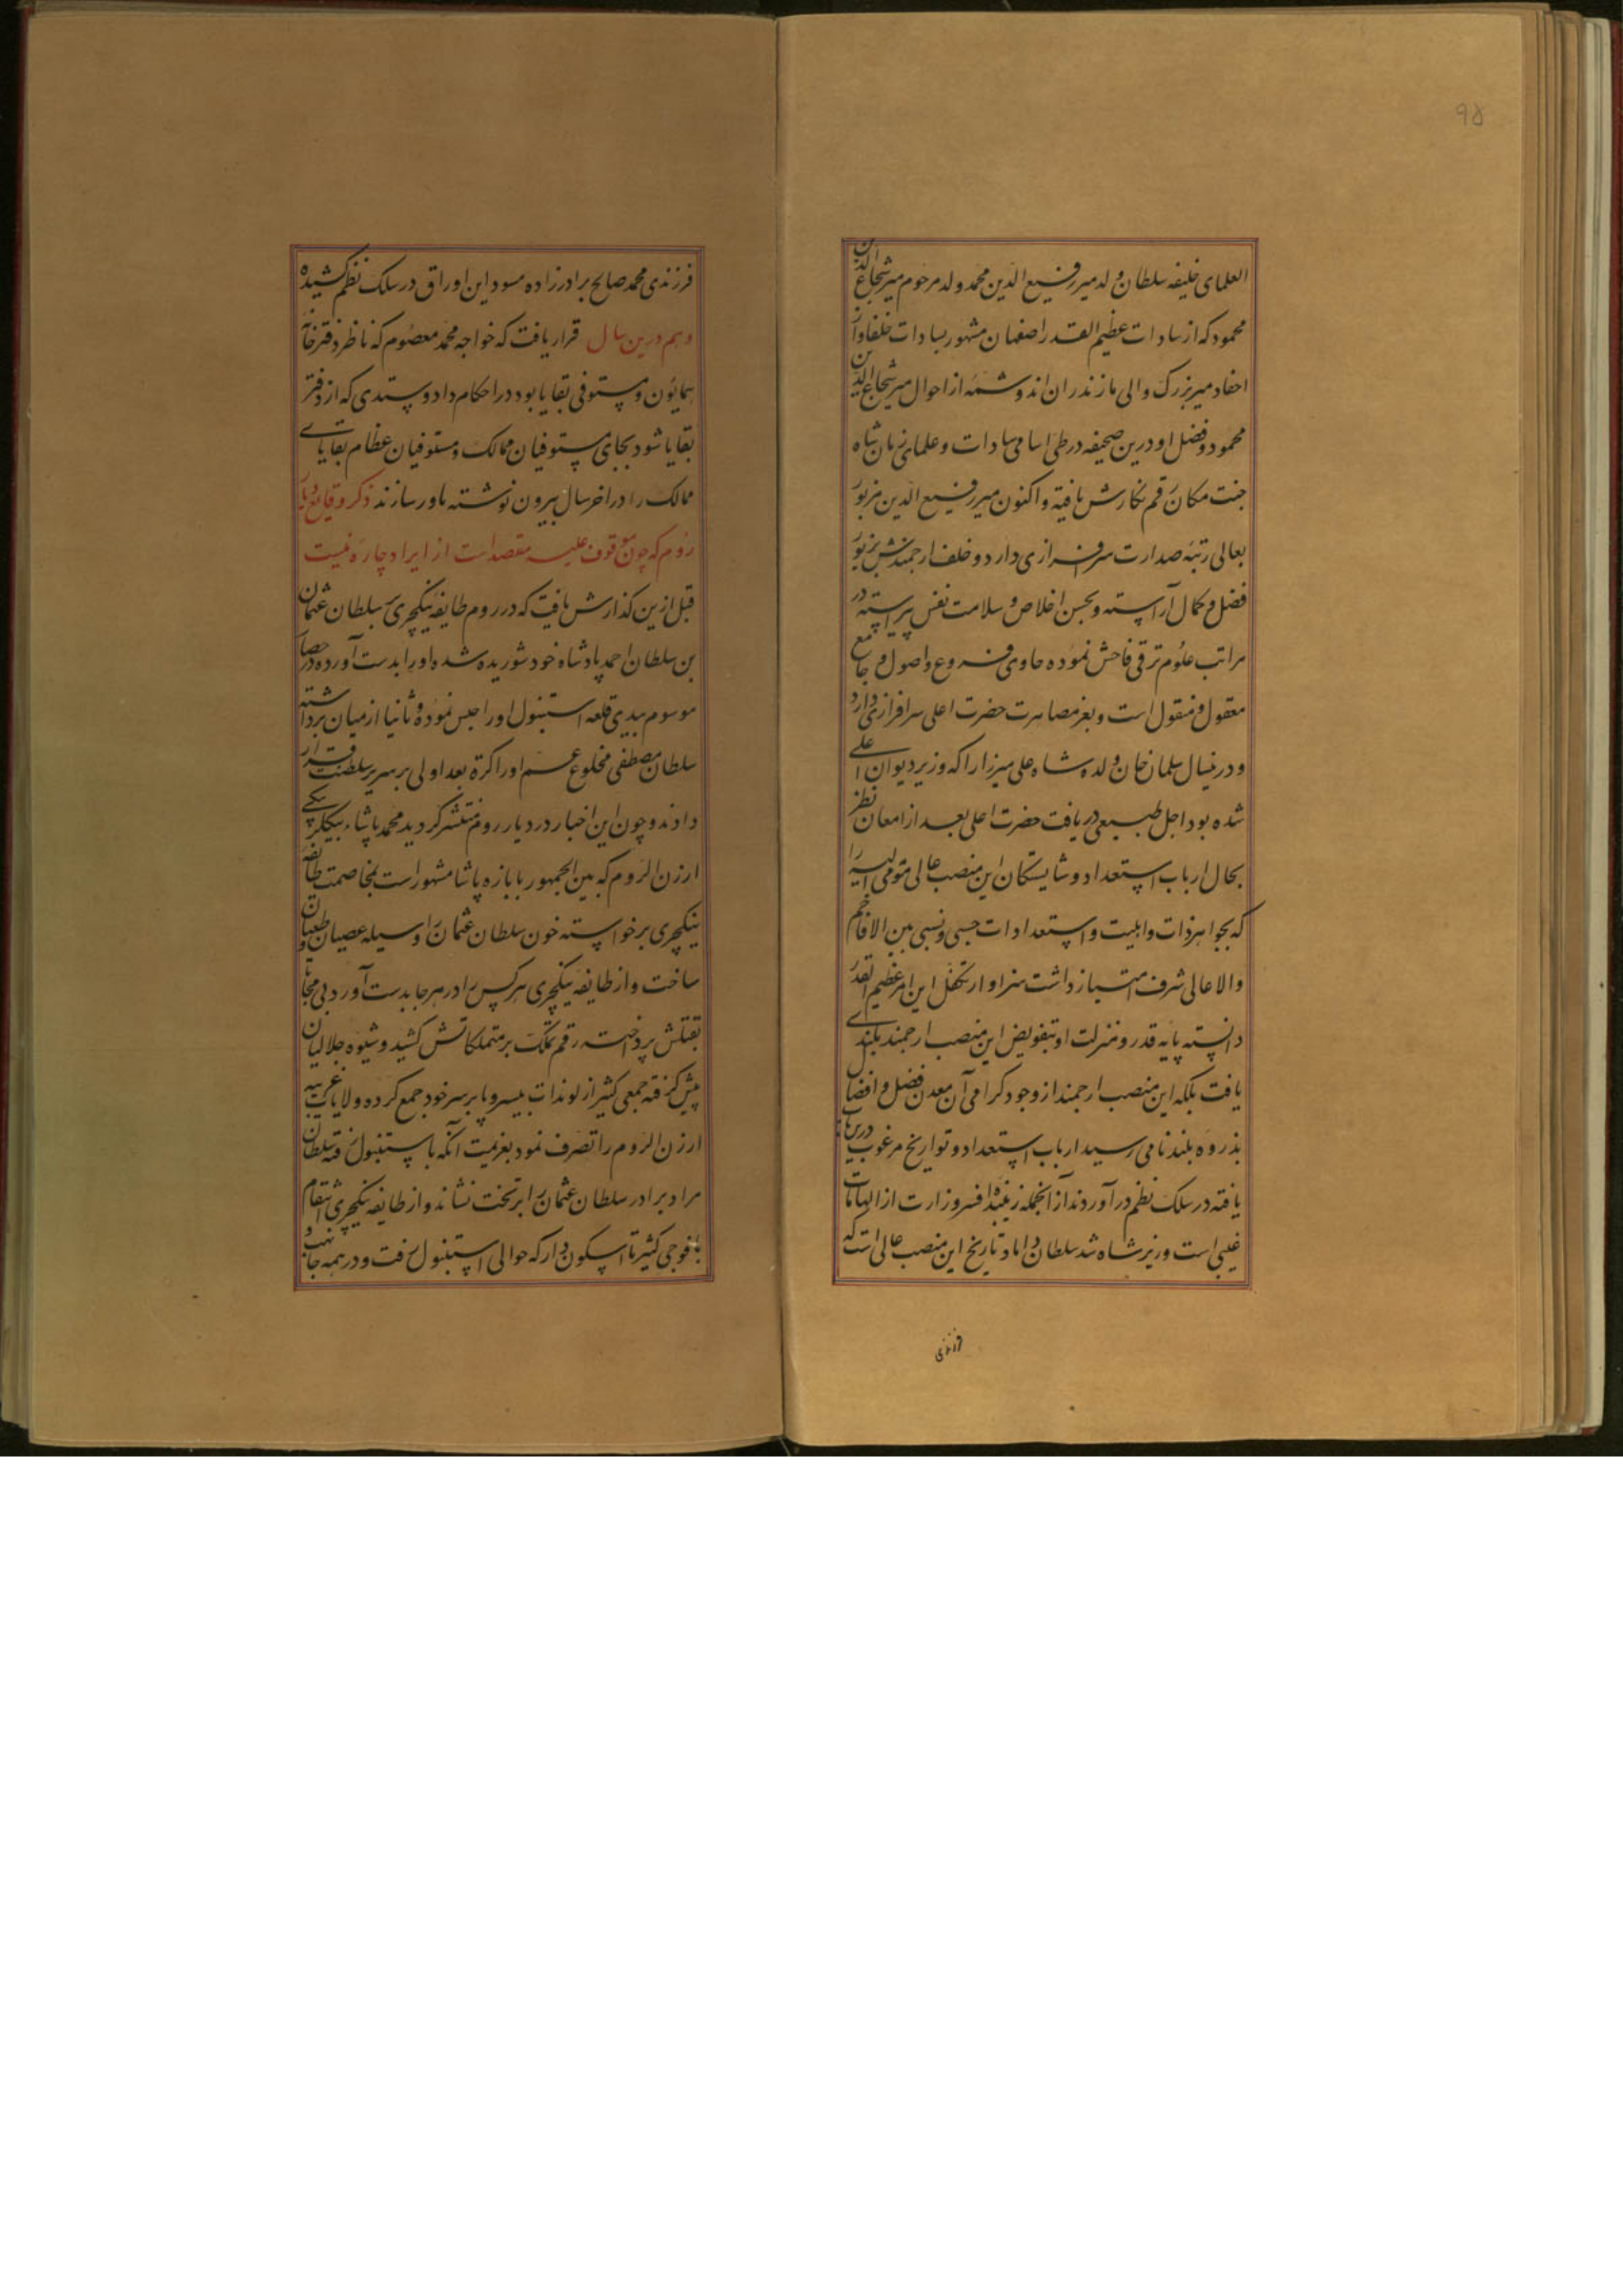 ۹۵
العلمای خلیفه سلطان ولد میر رفیع الدین محمد ولد مرحوم میر شجاع الدین
محمود که از سادات عظیم القدر اصفهان مشهور بسادات خلفا و از
احفاد میر بزرگ والی مازندران اند و شمه از احوال میر شجاع الدین
محمود و فضل او درین صحیفه در طی اسامی سادات و علمای زمان شاه
جنت مکان رقم نکارش یافته و اکنون میر رفیع الدین مزبور
بعالی رتبه صدارت سرافرازی دارد و خلف ارجمندش بزیور
فضل و کمال آراسته و بحسن اخلاص و سلامت نفس پیراسته در
مراتب علوم ترقی فاحش نموده حاوی فروع و اصول و جامع
معقول و منقول است و بعز مصاهرت حضرت اعلی سرافرازی دارد
و درینسال سلمان خان ولد شاه علی میرزا را که وزیر دیوان اعلی
شده بود اجل طبیعی دریافت حضرت اعلی بعد از امعان نظر
بحال ارباب استعداد و شایستکان این منصب عالی مومی الیه را
که بجواهر ذات و اهلیت و استعدادات حسبی و نسبی بین الافاخم
والاعالی شرف امتیاز داشت سزاوار تکفل این امر عظیم القدر
دانسته پایه قدر و منزلت او بتفویض این منصب ارجمند بلندی
یافت بلکه این منصب ارجمند از وجود کرامی آن معدن فضل و افضال
بذروه بلند نامی رسید ارباب استعداد و تواریخ مرغوب درین باب
یافته در سلک نظم درآوردند از انجمله زیبنده افسر وزارت از الهامات
غیبی است وزیر شاه شد سلطان داماد تاریخ این منصب عالی است که
فرزندی
فرزندی محمد صالح برادرزاده مسود این اوراق در سلک نظم کشیده
و هم درین سال قرار یافت که خواجه محمد معصوم که ناظر دفترخانه
همایون و مستوفی بقایا بود در احکام داد و ستدی که از دفتر
بقایا شود بجای مستوفیان ممالک و مستوفیان عظام بقایای
ممالک را در اخر سال بیرون نوشته باور سازند ذکر وقایع دیار
روم که چون موقوف علیه مقصد است از ایراد چاره نیست
قبل ازین کذارش یافت که در روم طایفه ینکچری بسلطان عثمان
بن سلطان احمد پادشاه خود شوریده شده او را بدست آورده در حصار
موسوم بیدی قلعه استنبول او را حبس نموده و ثانیا از میان برداشته
سلطان مصطفی مخلوع عم او را کرة بعد اولی بر سریر سلطنت قرار
دادند و چون این اخبار در دیار روم منتشر کردید محمد پاشاء بیکلربیکی
ارزن الروم که بین الجمهور بابازه پاشا مشهور است بمخاصمت طایفه
ینکچری برخواسته خون سلطان عثمان را وسیله عصیان و طغیان
ساخت و از طایفه ینکچری هرکس را در هرجا بدست آورد بی محابا
بقتلش پرداخته رقم تملک بر متملکاتش کشید و شیوه جلالیان
پیش کرفته جمعی کثیر از لوندات بیسروپا بر سر خود جمع کرده ولایات غریبه
ارزن الروم را تصرف نمود بعزیمت آنکه باستنبول رفته سلطان
مراد برادر سلطان عثمان را بر تخت نشاند و از طایفه ینکچری انتقام
با فوجی کثیر تا اسکودار که حوالی استنبول رفت و در همه جا نهب و